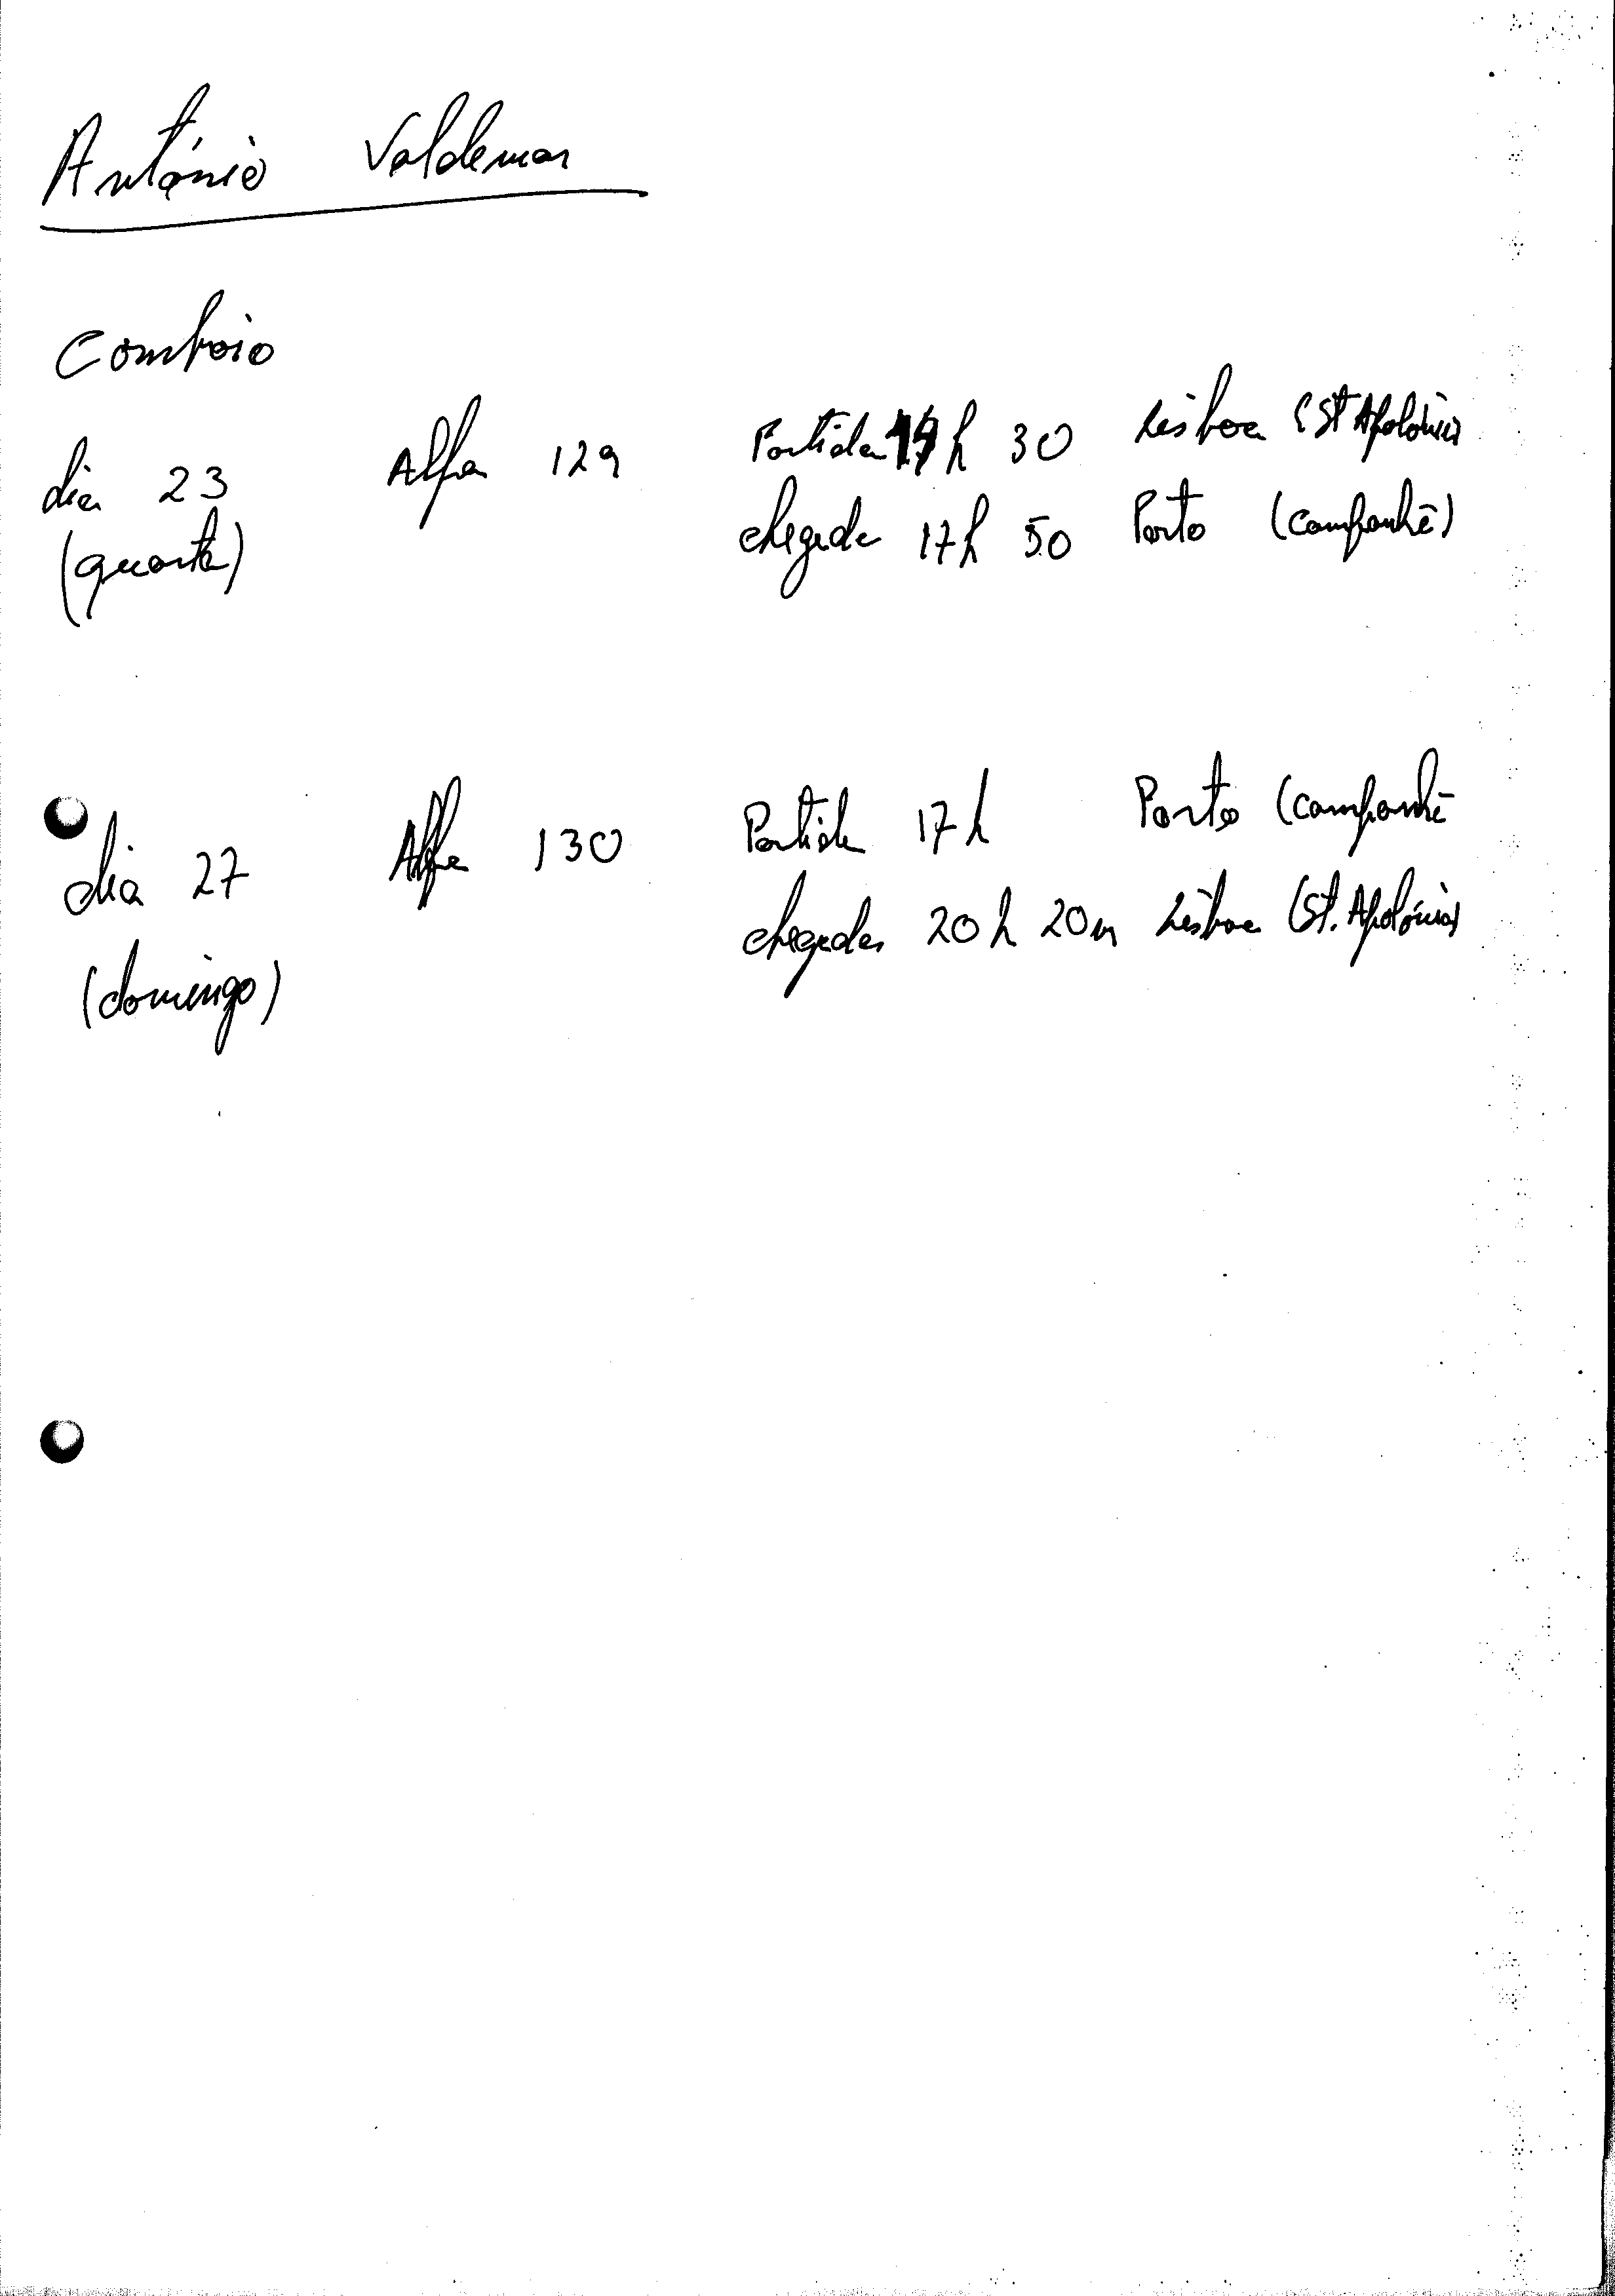 António Valdemar
Comboio
dia 23 Alfa 129 Partida 14h 30 Lisboa (St Apolónia)
(quarta) chegada 17h 50 Porto (Campanhã)
dia 27 Alfa 130 Partida 17h Porto (Campanhã
(domingo) chegada 20h 20m Lisboa (St. Apolónia)